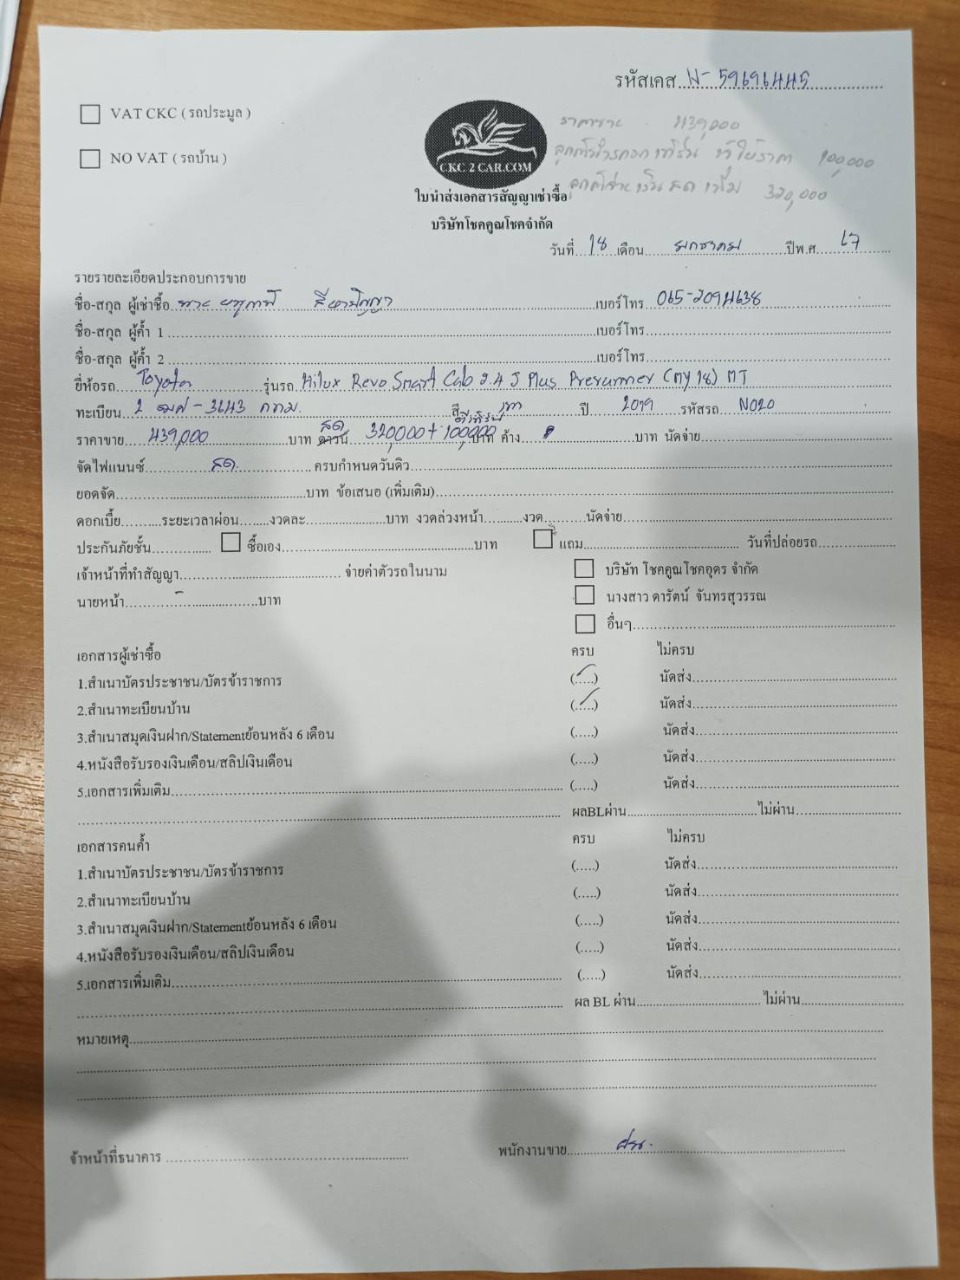 รหัสเคส N-59696445
VAT CKC ( รถประมูล )
NO VAT ( รถบ้าน )
CKC 2 CAR.COM
ราคาขาย 439,000
100,000
320,000
ใบนำส่งเอกสารสัญญาเช่าซื้อ
บริษัทโชคคูณโชคจำกัด
วันที่ 18 เดือน มกราคม ปีพ.ศ. 67
รายรายละเอียดประกอบการขาย
ชื่อ-สกุล ผู้เช่าซื้อ นาย เบอร์โทร 065-2094638
ชื่อ-สกุล ผู้ค้ำ 1 เบอร์โทร
ชื่อ-สกุล ผู้ค้ำ 2 เบอร์โทร
ยี่ห้อรถ Toyota รุ่นรถ Hilux Revo Smart Cab 2.4 J Plus Prerunner (MY18) MT
ทะเบียน 2 ฒศ - 3643 กทม. สี เทา ปี 2019 รหัสรถ N020
ราคาขาย 439,000 บาท ดาวน์ สด 320,000 + 100,000 บาท ค้าง บาท นัดจ่าย
จัดไฟแนนซ์ สด ครบกำหนดวันดิว
ยอดจัด บาท ข้อเสนอ (เพิ่มเติม)
ดอกเบี้ย ระยะเวลาผ่อน งวดละ บาท งวดล่วงหน้า งวด นัดจ่าย
ประกันภัยชั้น ซื้อเอง บาท แถม วันที่ปล่อยรถ
เจ้าหน้าที่ทำสัญญา จ่ายค่าตัวรถในนาม บริษัท โชคคูณโชคอุดร จำกัด
นายหน้า - บาท นางสาว ดารัตน์ จันทรสุวรรณ
อื่นๆ
เอกสารผู้เช่าซื้อ ครบ ไม่ครบ
1.สำเนาบัตรประชาชน/บัตรข้าราชการ (.....) นัดส่ง
2.สำเนาทะเบียนบ้าน (.....) นัดส่ง
3.สำเนาสมุดเงินฝาก/Statementย้อนหลัง 6 เดือน (.....) นัดส่ง
4.หนังสือรับรองเงินเดือน/สลิปเงินเดือน (.....) นัดส่ง
5.เอกสารเพิ่มเติม (.....) นัดส่ง
ผลBLผ่าน ไม่ผ่าน
เอกสารคนค้ำ ครบ ไม่ครบ
1.สำเนาบัตรประชาชน/บัตรข้าราชการ (.....) นัดส่ง
2.สำเนาทะเบียนบ้าน (.....) นัดส่ง
3.สำเนาสมุดเงินฝาก/Statementย้อนหลัง 6 เดือน (.....) นัดส่ง
4.หนังสือรับรองเงินเดือน/สลิปเงินเดือน (.....) นัดส่ง
5.เอกสารเพิ่มเติม (.....) นัดส่ง
ผล BL ผ่าน ไม่ผ่าน
หมายเหตุ
จ้าหน้าที่ธนาคาร พนักงานขาย